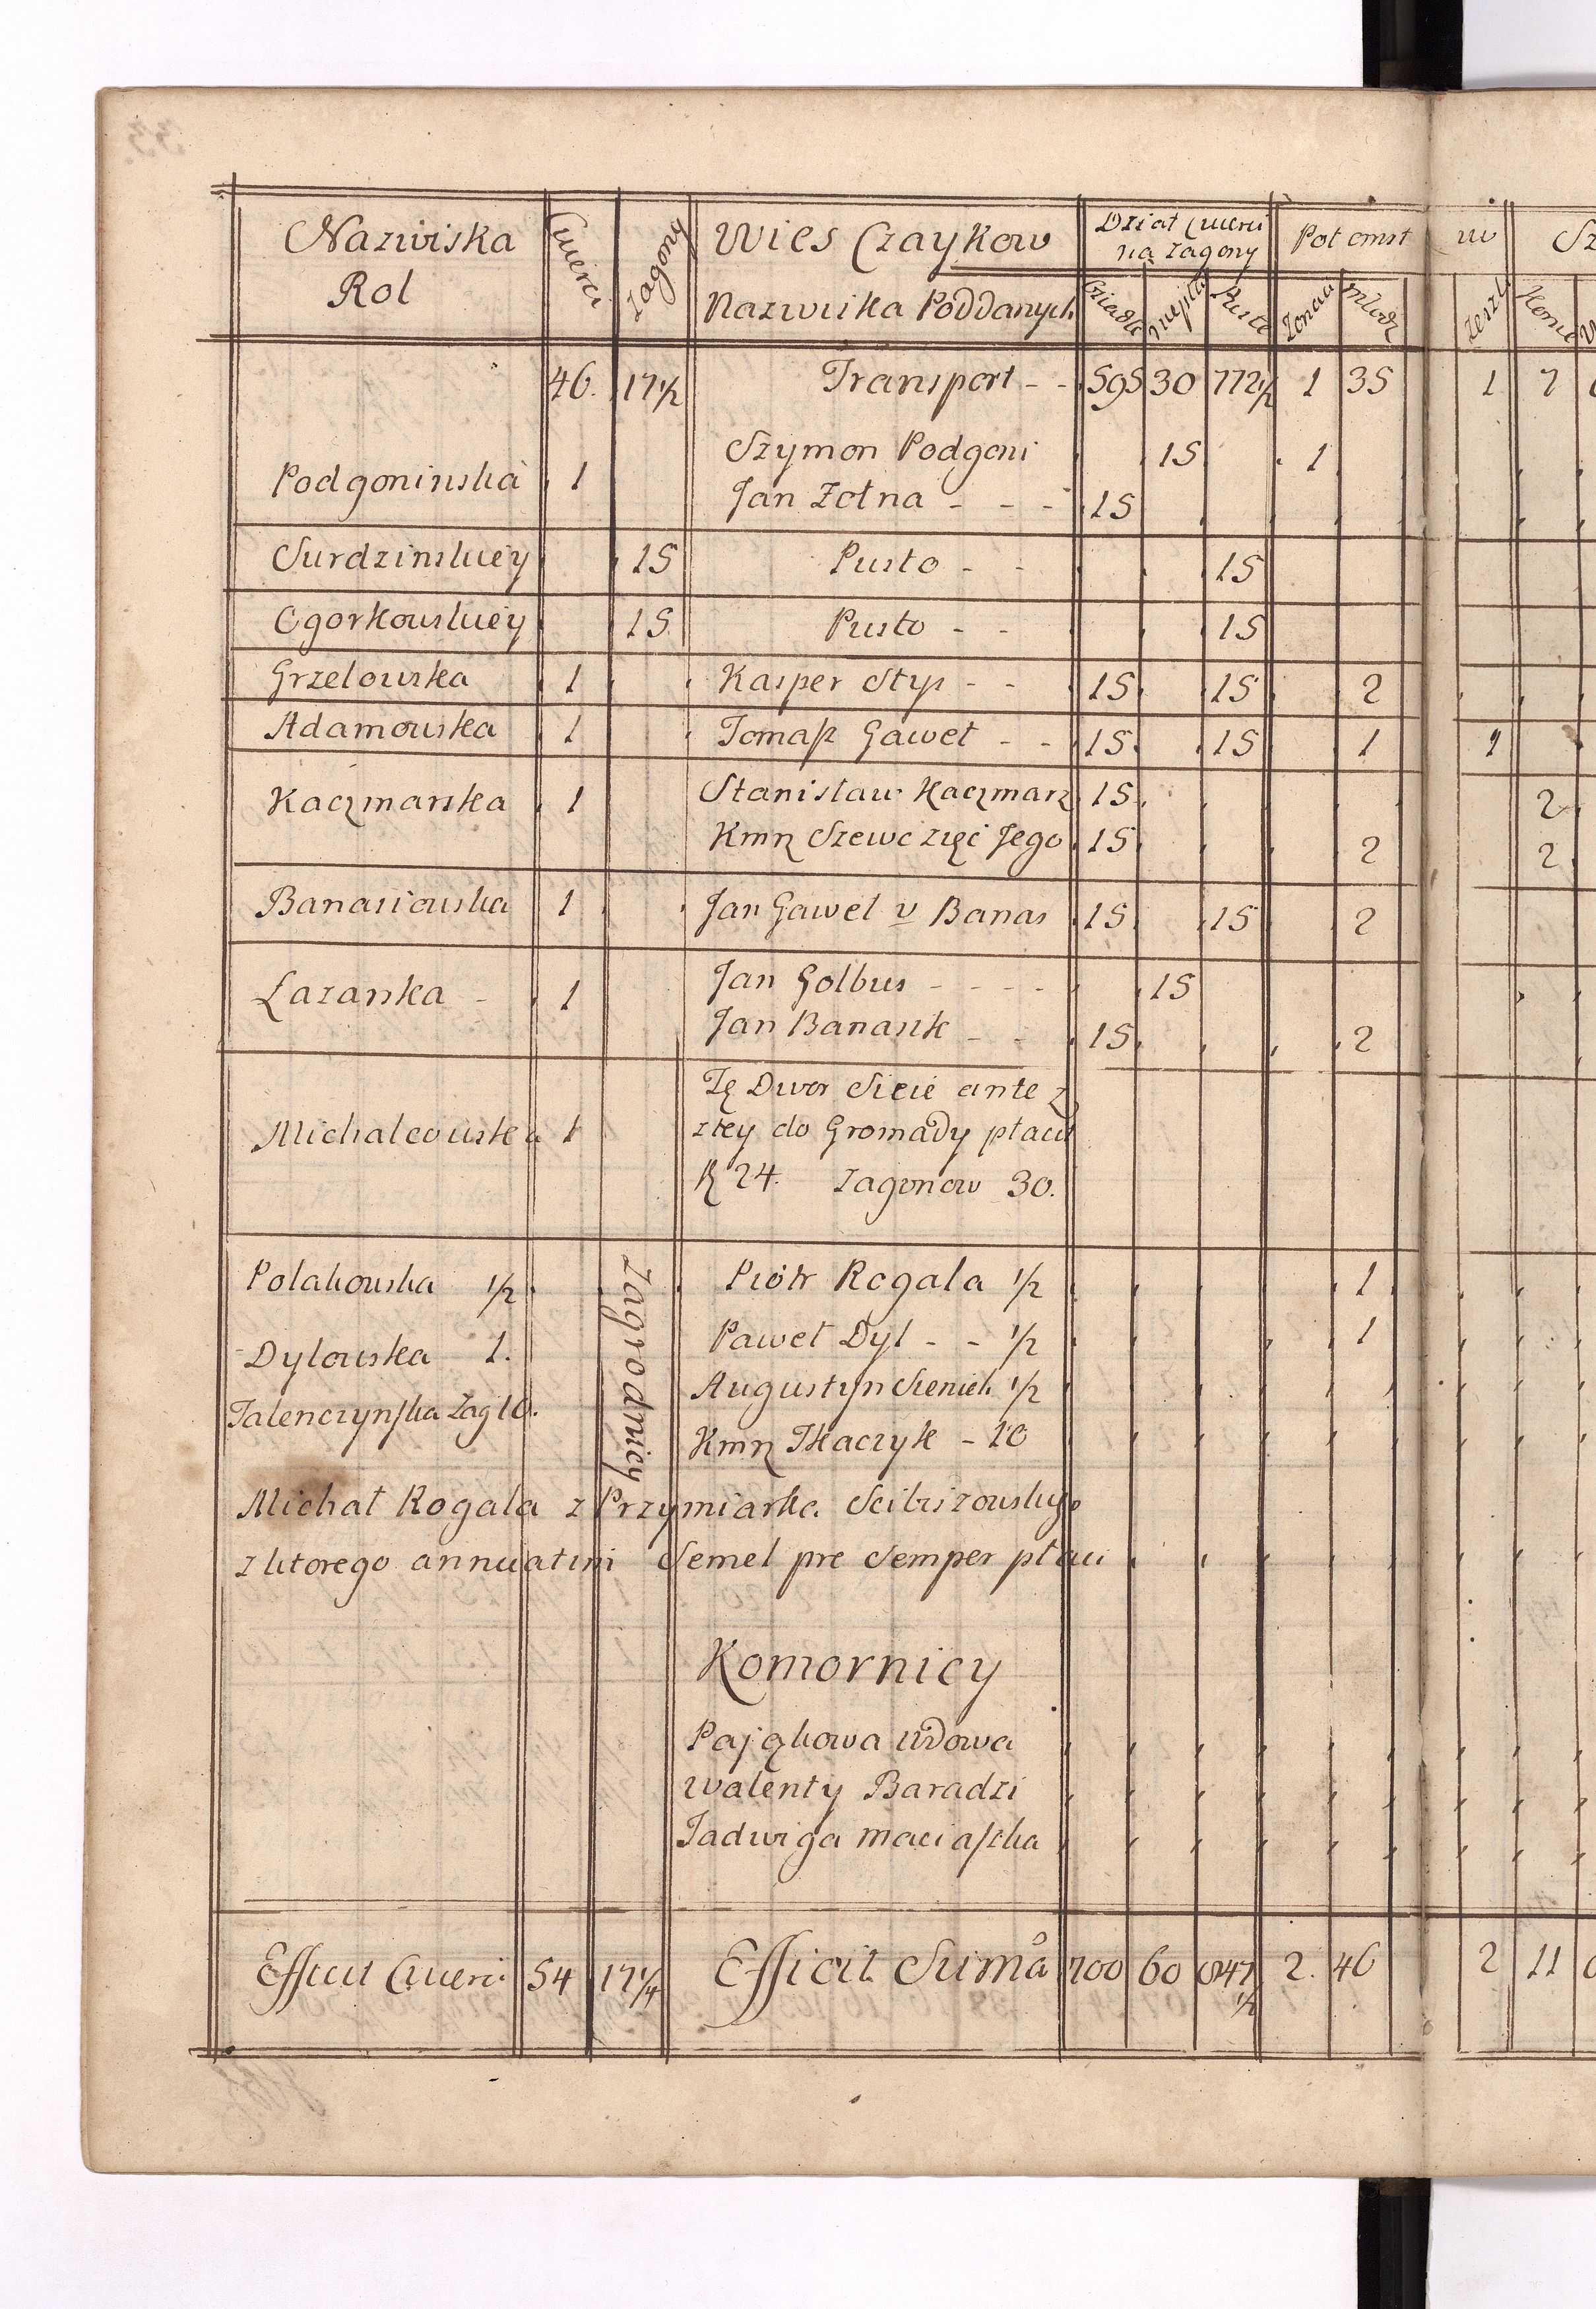 Nazwiska Rol Cwierci Zagony Wies Czaykow Dział Cwierci na zagony Potomst
Nazwiska Poddanych Osiadłe Puste Żonaci Młodz
46. 17½ Transport - - 595 30 772½ 1 35 1 7
Szymon Podgoni 15 1
Podgoninska 1 Jan Żołna - - - 15
Surdzinskiey 15 Pusto - - 15
Ogorkowskiey 15 Pusto - - 15
Grzelowska 1 Kasper Styś - - 15 15 2
Adamowska 1 Tomasz Gaweł - - 15 15 1 1
Kaczmarska 1 Stanislaw Kaczmarz 15 2
Kmrz Szewc zięć Jego 15 2 2
Banasiowska 1 Jan Gaweł v Banas 15 15 2
Lazarska - 1 Jan Golbus - - - - 15
Jan Banasik - - 15 2
Michalcowska 1 Tę Dwor Sieie ante z
ktey do Gromady płacił
R 24. Zagonow 30.
Zagrodnicy
Polakowska ½ Piotr Rogala ½ 1
Dylowska 1. Paweł Dyl - - ½ 1
Augustyn Sienich ½
Talenczynska Zag 10. Kmrz Tkaczyk - 10
Michał Rogala z Przymiarka Scibiszowskiego
z ktorego annuatim Semel pre Semper płaci
Komornicy
Pająkowa Wdowa
Walenty Baradzi
Jadwiga Maciaszka
Efficit Cwierci 54 17¼ Efficit Suma 700 60 847½ 2. 46 2 11